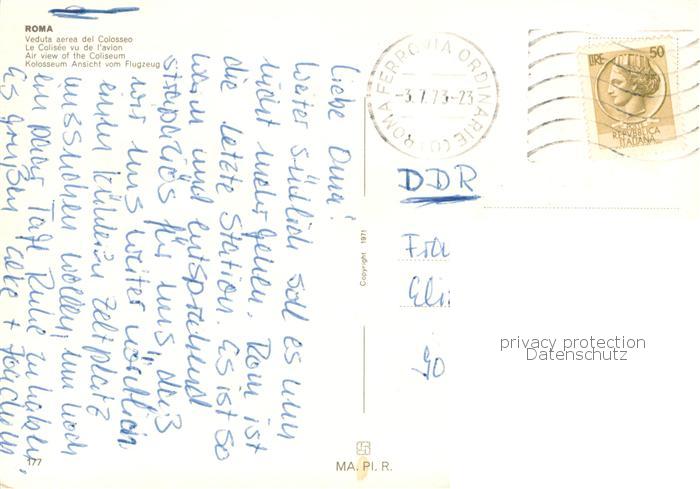 ROMA
Veduta aerea del Colosseo
Le Colisée vu de l'avion
Air view of the Coliseum
Kolosseum Ansicht vom Flugzeug
Liebe Oma!
Weiter südlich soll es nun
nicht mehr gehen. Rom ist
die letzte Station. Es ist so
warm und entsprechend
strapaziös für uns, daß
wir uns weiter nördlich
einen kühleren Zeltplatz
aussuchen wollen, um noch
ein paar Tage Ruhe zu haben.
Es grüßen +
177
Copyright 1971
MA. PI. R.
ROMA FERROVIA ORDINARIE
-3.7.73-23
LIRE 50
REPVBBLICA
ITALIANA
DDR
Fra
Eli
go
privacy protection
Datenschutz